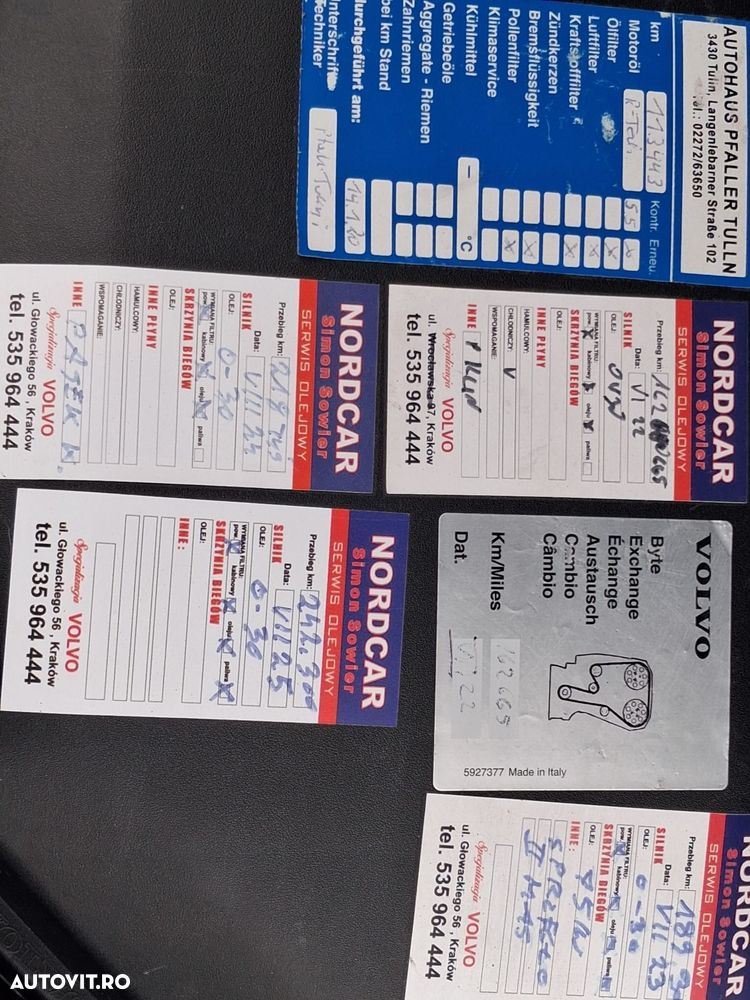 AUTOHAUS PFALLER TULLN
3430 Tulln, Langenlebarner Straße 102
Tel.: 02272/63650
Kontr. Erneu.
km 113443
Motoröl 5.5 x
Ölfilter x
Luftfilter x
Kraftstofffilter x
Zündkerzen
Bremsflüssigkeit x
Pollenfilter x
Klimaservice
Kühlmittel – °C
Getriebeöle
Aggregate - Riemen
Zahnriemen
bei km Stand
durchgeführt am: 14.1.20
Unterschrift
Techniker
NORDCAR
Simon Sowier
SERWIS OLEJOWY
Przebieg km:
SILNIK Data: VIII 24
OLEJ: 0-30
WYMIANA FILTRU:
pow. X kabinowy X oleju X paliwa
SKRZYNIA BIEGÓW
OLEJ:
INNE PŁYNY
HAMULCOWY:
CHŁODNICZY:
WSPOMAGANIE:
INNE
Specjalizacja VOLVO
ul. Głowackiego 56 , Kraków
tel. 535 964 444
NORDCAR
Simon Sowier
SERWIS OLEJOWY
Przebieg km: 162
SILNIK Data: VI 22
OLEJ:
WYMIANA FILTRU:
pow. X kabinowy X oleju X paliwa
SKRZYNIA BIEGÓW
OLEJ:
INNE PŁYNY
HAMULCOWY:
CHŁODNICZY: V
WSPOMAGANIE:
INNE
Specjalizacja VOLVO
ul. Wrocławska 97, Kraków
tel. 535 964 444
NORDCAR
Simon Sowier
SERWIS OLEJOWY
Przebieg km: 242.300
SILNIK Data: VII 25
OLEJ: 0-30
WYMIANA FILTRU:
pow. X kabinowy X oleju X paliwa X
SKRZYNIA BIEGÓW
OLEJ:
INNE:
Specjalizacja VOLVO
ul. Głowackiego 56 , Kraków
tel. 535 964 444
VOLVO
Byte
Exchange
Échange
Austausch
Cambio
Câmbio
Km/Miles 162665
Dat. VI 22
5927377 Made in Italy
NORDCAR
Simon Sowier
SERWIS OLEJOWY
Przebieg km: 189
SILNIK Data: VII 23
OLEJ: 0-30
WYMIANA FILTRU:
pow. X kabinowy X oleju paliwa
SKRZYNIA BIEGÓW
OLEJ: 75W
INNE:
Specjalizacja VOLVO
ul. Głowackiego 56 , Kraków
tel. 535 964 444
AUTOVIT.RO